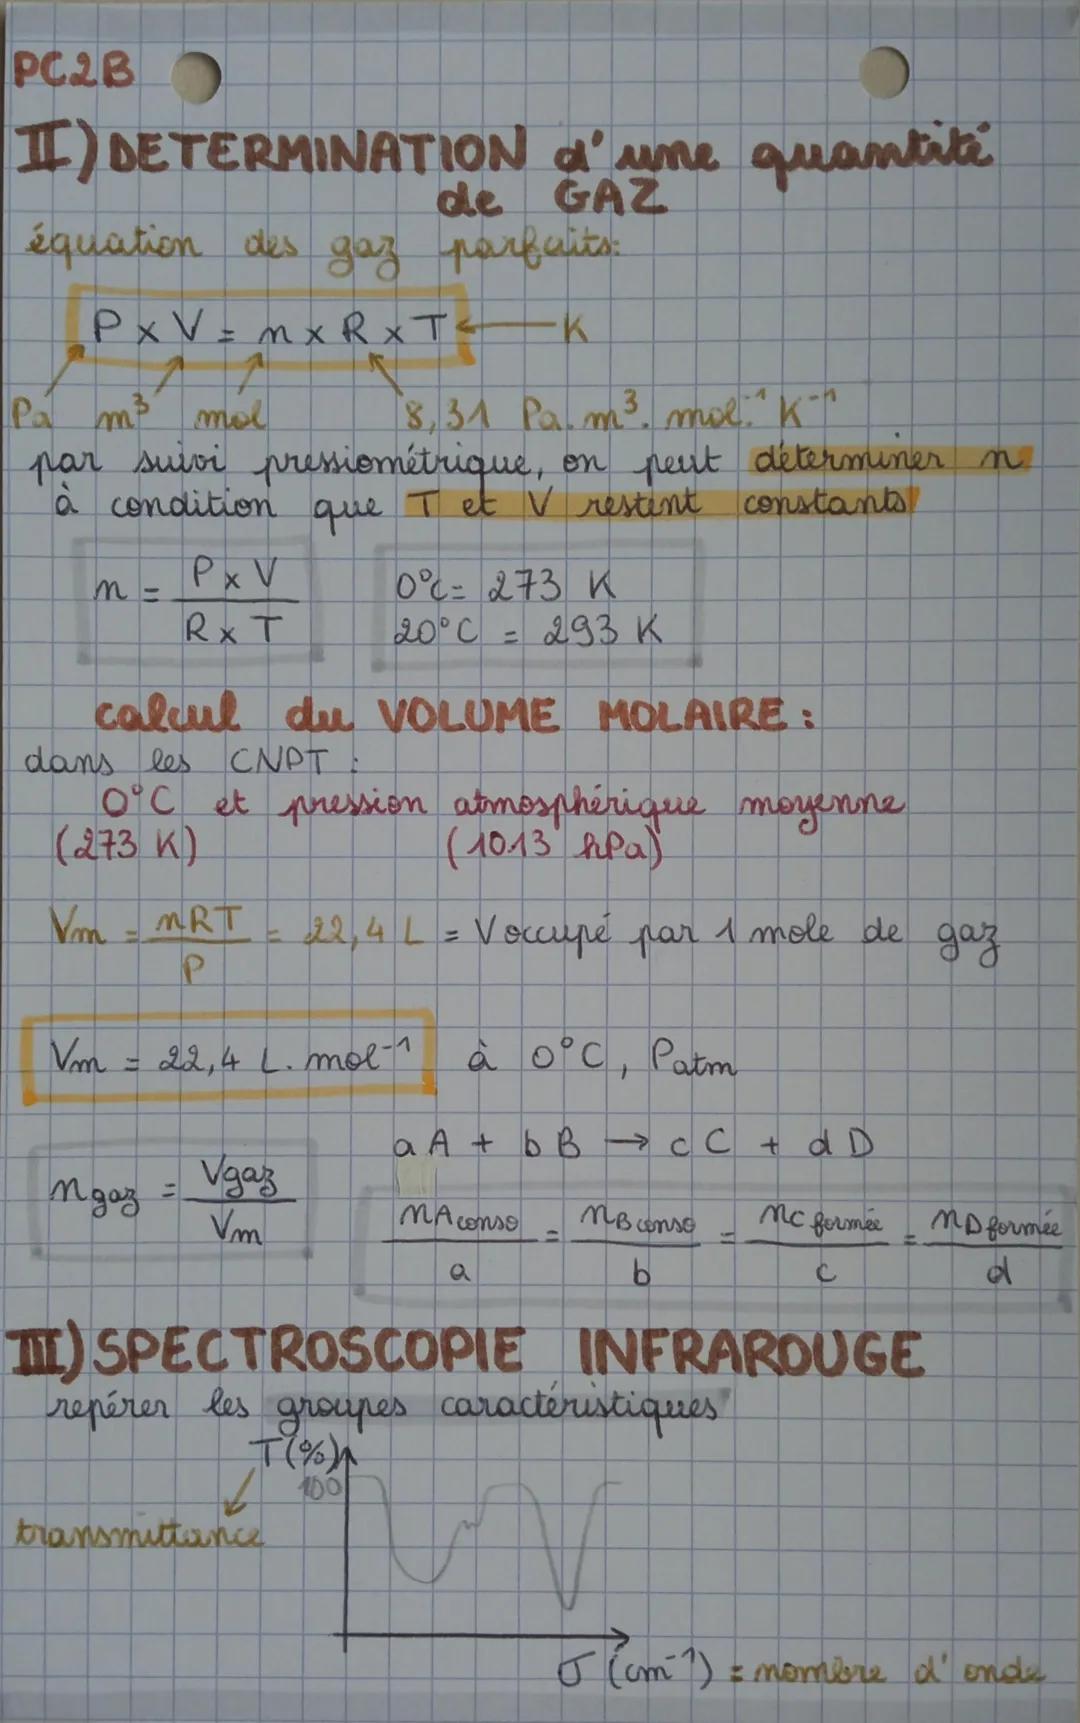 PC2B
II) DETERMINATION d'une quantité
de GAZ
équation des gaz parfaits:
P x V = n x R x T ← K
Pa m³ mol 8,31 Pa.m³.mol⁻¹ K⁻¹
par suivi pressiométrique, on peut déterminer n
à condition que T et V restent constants
n = P x V / R x T
0°C = 273 K
20°C = 293 K
calcul du VOLUME MOLAIRE :
dans les CNPT :
0°C et pression atmosphérique moyenne
(273 K) (1013 hPa)
Vm = nRT / P = 22,4 L = V occupé par 1 mole de gaz
Vm = 22,4 L.mol⁻¹ à 0°C, Patm
aA + bB → cC + dD
n gaz = Vgaz / Vm
nA conso / a = nB conso / b = nC formée / c = nD formée / d
III) SPECTROSCOPIE INFRAROUGE
repérer les groupes caractéristiques
T(%)
100
transmittance
σ (cm⁻¹) = nombre d'onde